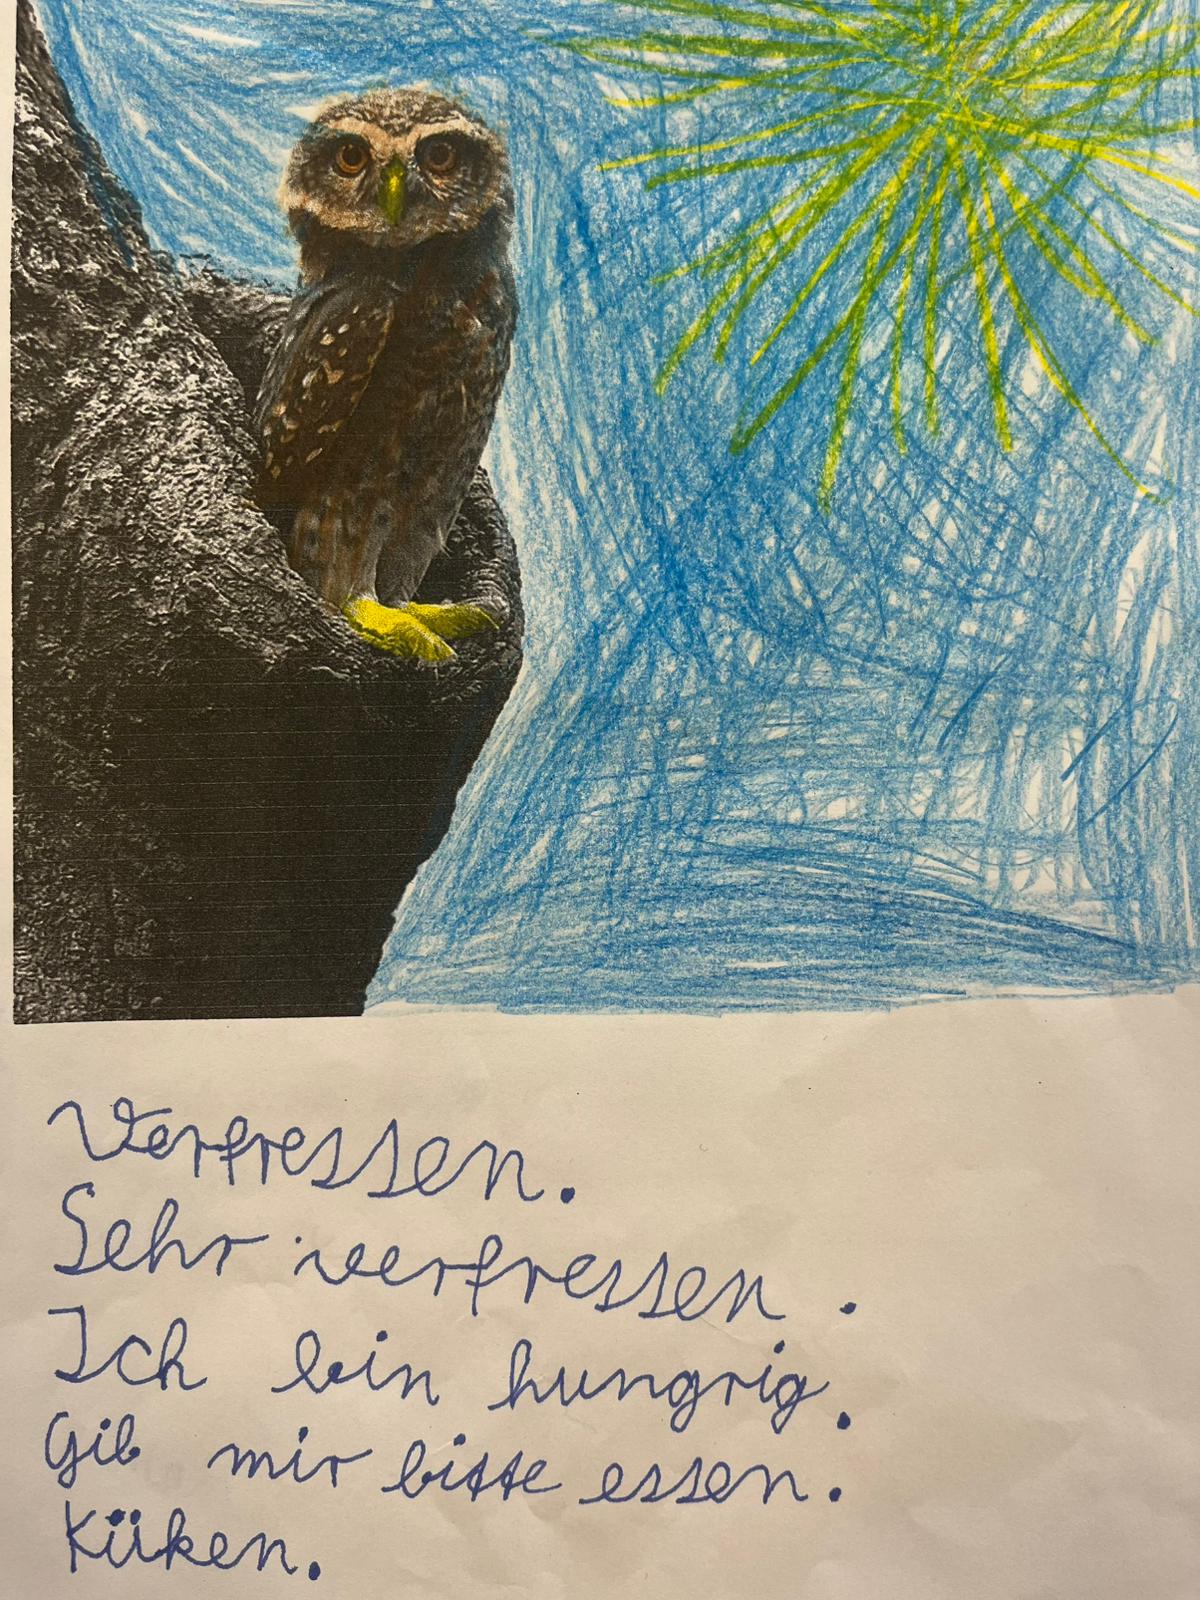 Verfressen.
Sehr verfressen.
Ich bin hungrig.
Gib mir bitte essen.
Küken.